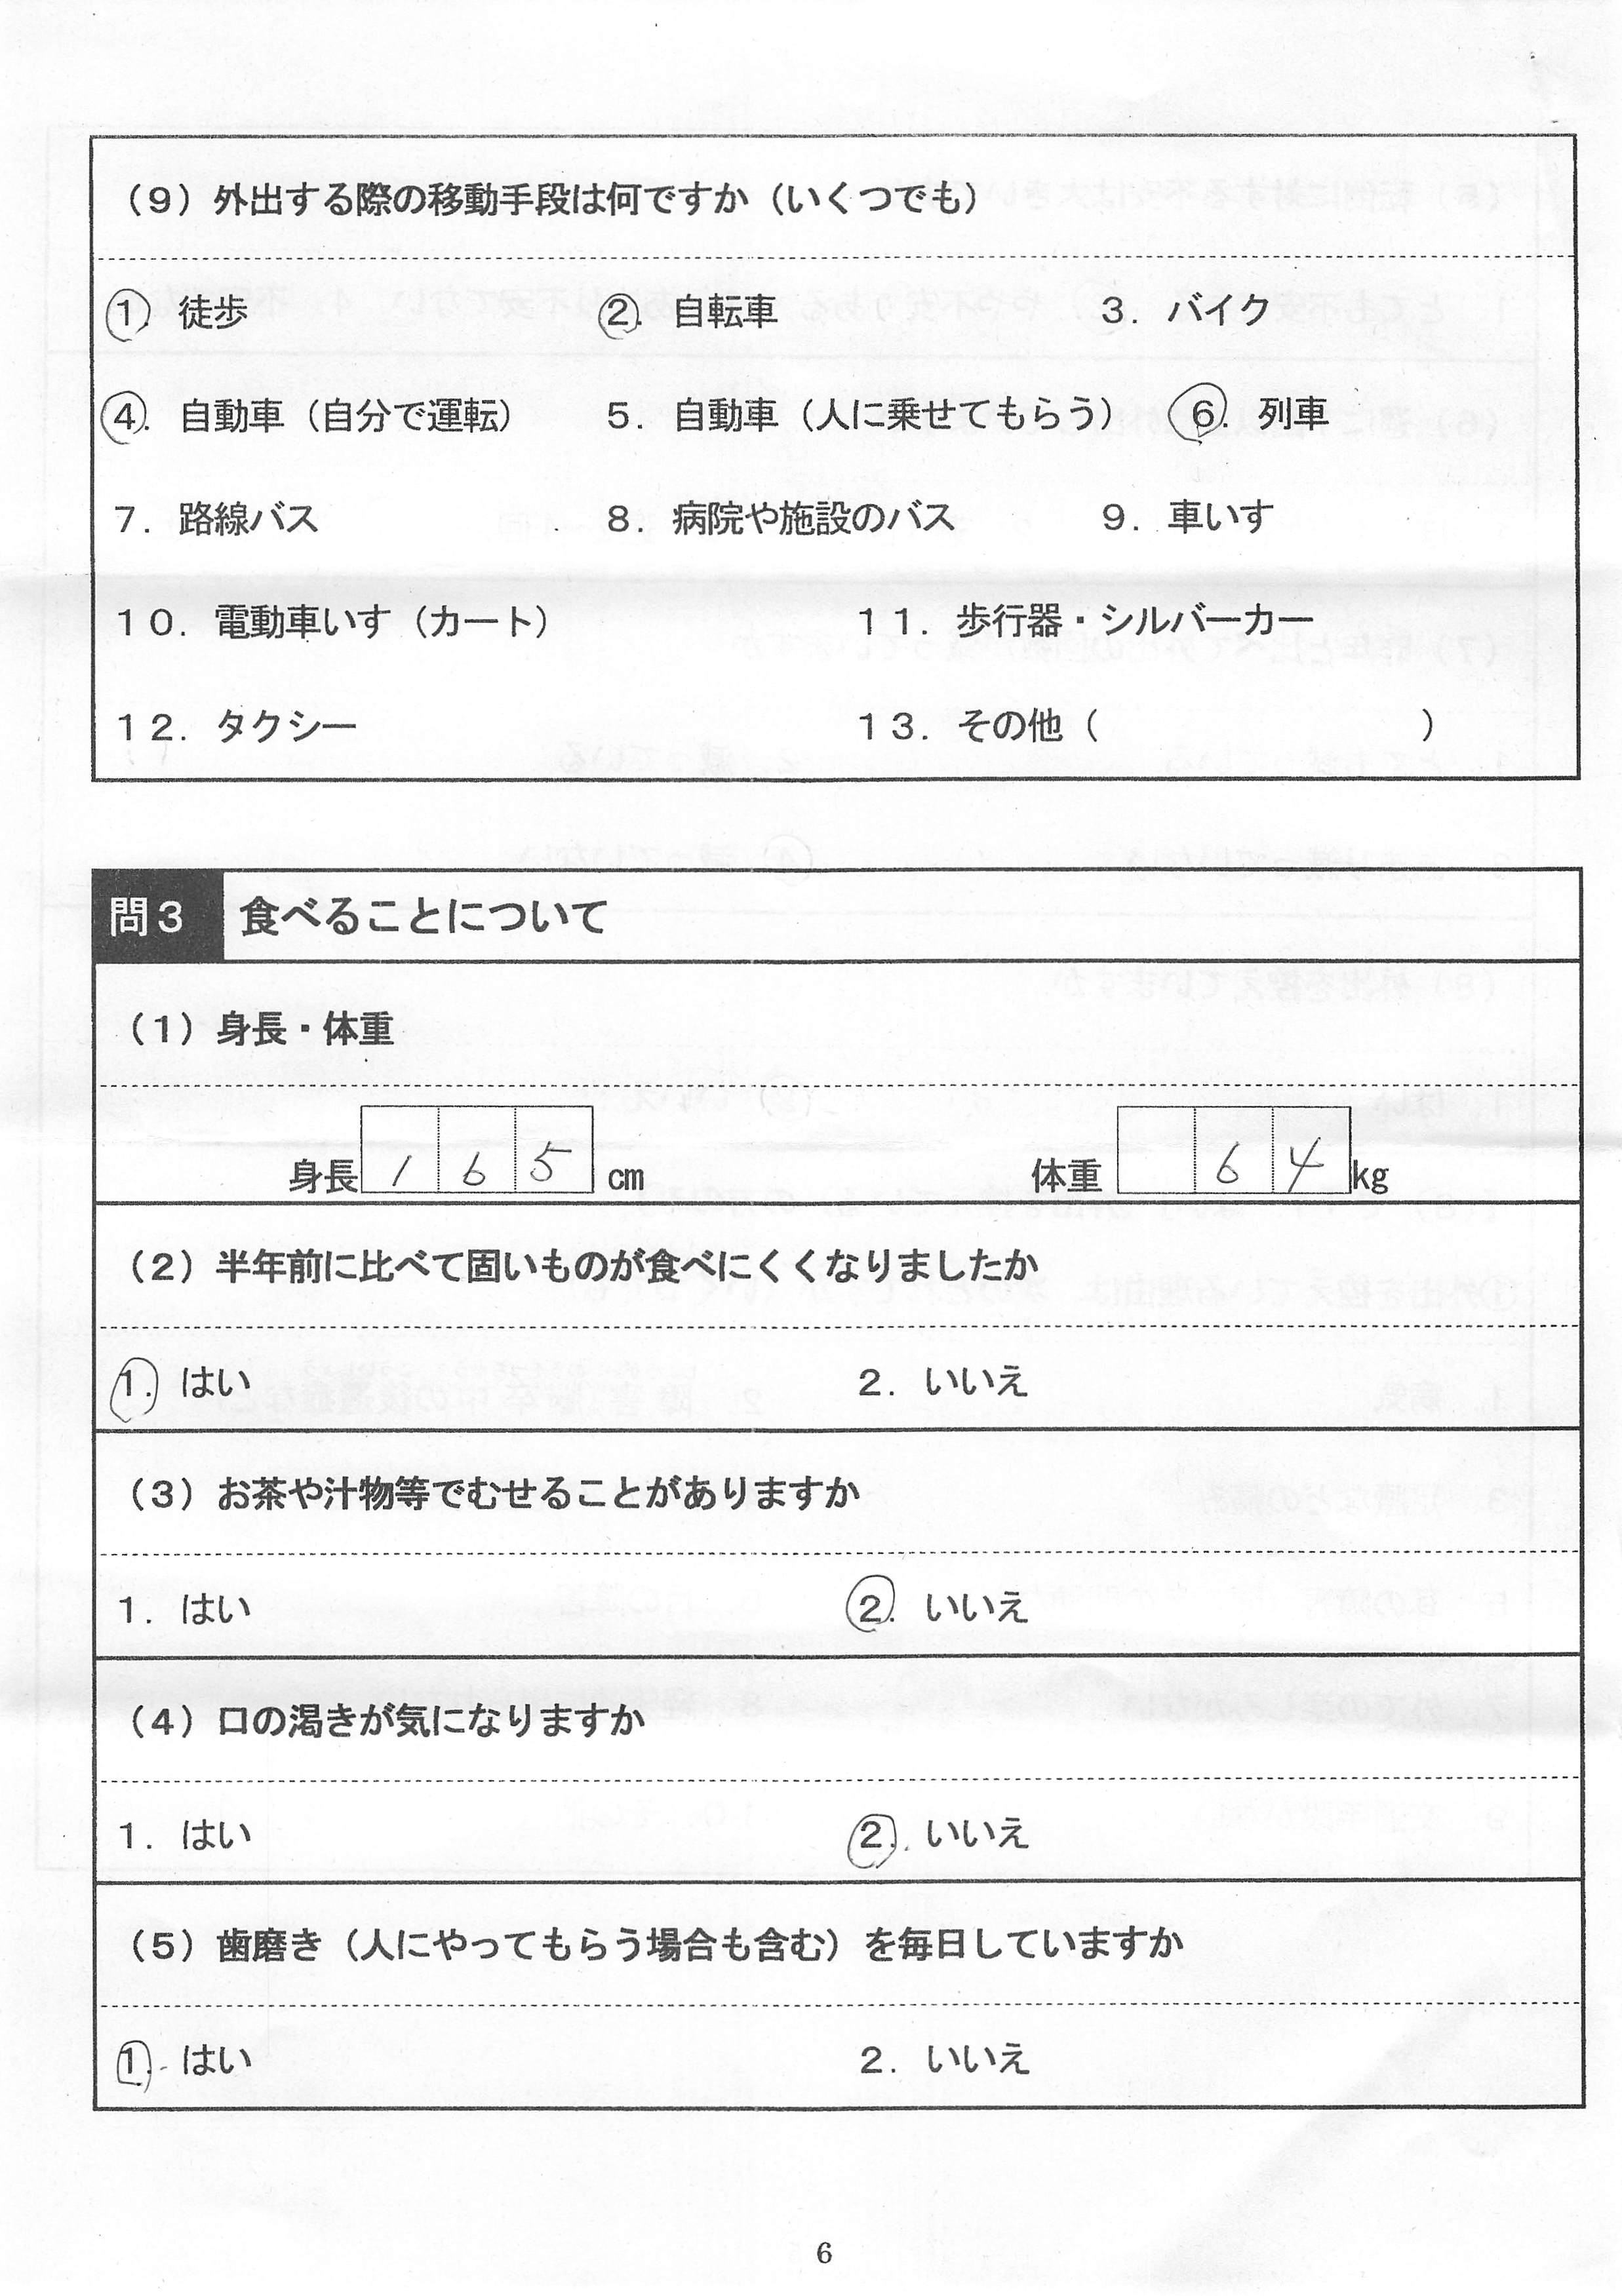 （９）外出する際の移動手段は何ですか（いくつでも）
１．徒歩　２．自転車　３．バイク
４．自動車（自分で運転）　５．自動車（人に乗せてもらう）　６．列車
７．路線バス　８．病院や施設のバス　９．車いす
１０．電動車いす（カート）　１１．歩行器・シルバーカー
１２．タクシー　１３．その他（　　　　　　　　　）
問３　食べることについて
（１）身長・体重
身長 1 6 5 cm　体重 6 4 kg
（２）半年前に比べて固いものが食べにくくなりましたか
１．はい　２．いいえ
（３）お茶や汁物等でむせることがありますか
１．はい　２．いいえ
（４）口の渇きが気になりますか
１．はい　２．いいえ
（５）歯磨き（人にやってもらう場合も含む）を毎日していますか
１．はい　２．いいえ
6